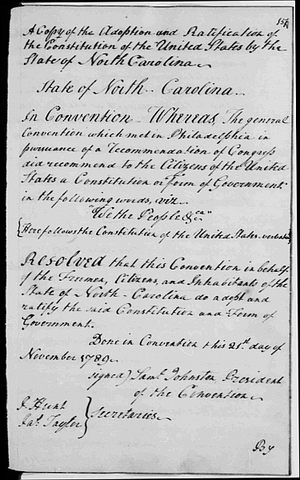 A Copy of the Adoption and Ratification of
the Constitution of the United States by the
State of North Carolina
State of North-Carolina
In Convention. Whereas, The general
Convention which met in Philadelphia in
pursuance of a recommendation of Congress
did recommend to the Citizens of the United
States a Constitution or Form of Government
in the following words, viz.
"We the People &ca"
[Here follows the Constitution of the United States verbatim]
Resolved that this Convention in behalf
of the Freemen, Citizens, and Inhabitants of the
State of North-Carolina do adopt and
ratify the said Constitution and Form of
Government.
Done in Convention this 21st day of
November 1789.
signed) Saml Johnston President
of the Convention
J. Hunt
Jas. Taylor } Secretaries
By